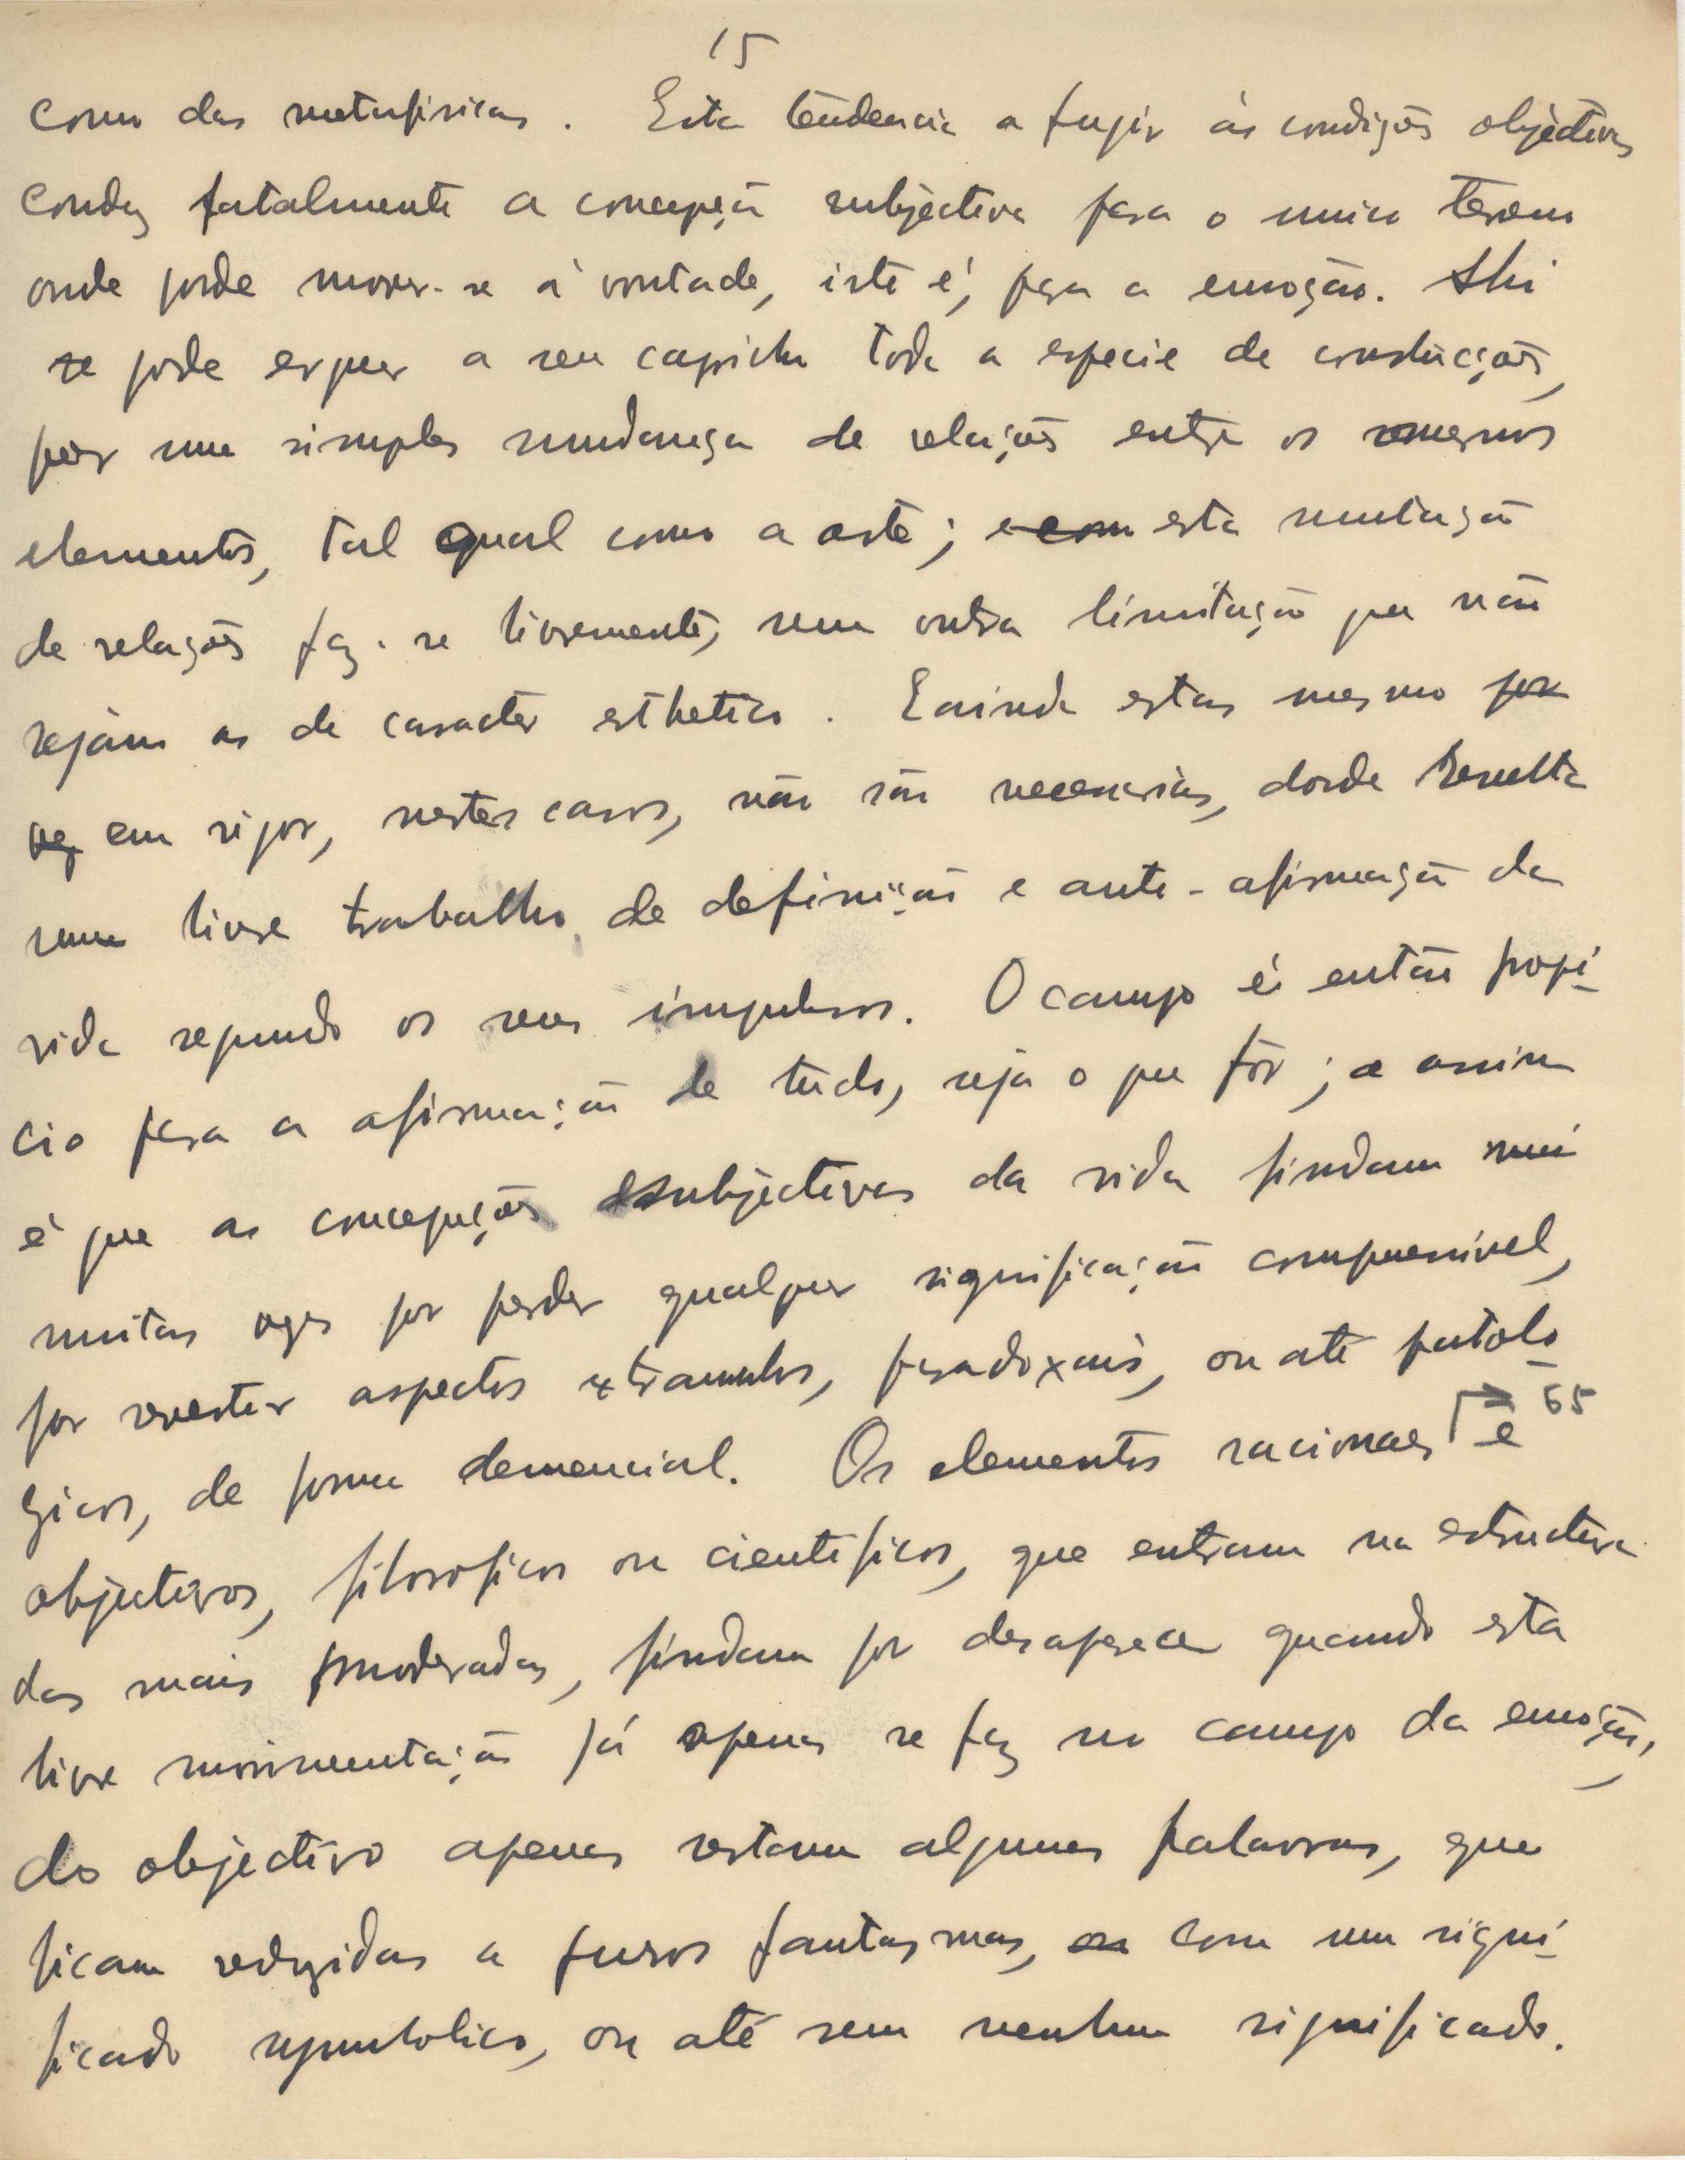 15
como das metafisicas. Esta tendencia a fugir ás condições objectivas
conduz fatalmente a concepção subjectiva para o unico terreno
onde pode mover-se á vontade, isto é, para a emoção. Ahi
se pode erguer a seu capricho toda a especie de construcções,
por uma simples mudança de relações entre os mesmos
elementos, tal qual como a arte; e com esta mutação
de relações faz-se livremente, sem outra limitação que não
sejam as de caracter esthetico. E ainda estas mesmo por
vez em rigor, nestes casos, não são necessarias, donde resulta
um livre trabalho de definição e auto-afirmação da
vida segundo os seus impulsos. O campo é então propi-
cio para a afirmação de tudo, seja o que fôr; e assim
é que as concepções subjectivas da vida findam mui
muitas vezes por perder qualquer significação compreensivel,
por revestir aspectos extranhos, paradoxais, ou até patolo-
gicos, de forma demencial. Os elementos racionaes e 65
objectivos, filosoficos ou cientificos, que entram na estructura
das mais moderadas, findam por desaparecer quando esta
livre movimentação já apenas se faz no campo da emoção,
do objectivo apenas restam algumas palavras, que
ficam reduzidas a puros fantasmas, ou com um signi-
ficado symbolico, ou até sem nenhum significado.